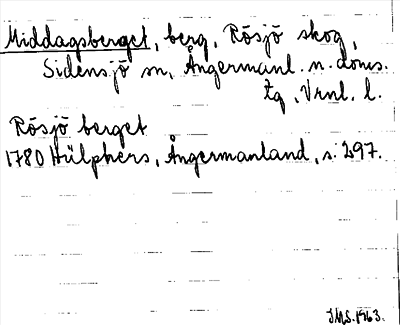 Middagsberget, berg, Rösjö skog,
Sidensjö sn, Ångermanl. n. doms.
tg, Vrnl. l.
Rösjö berget
1780 Hülphers, Ångermanland, s. 297.
IMS. 1963.